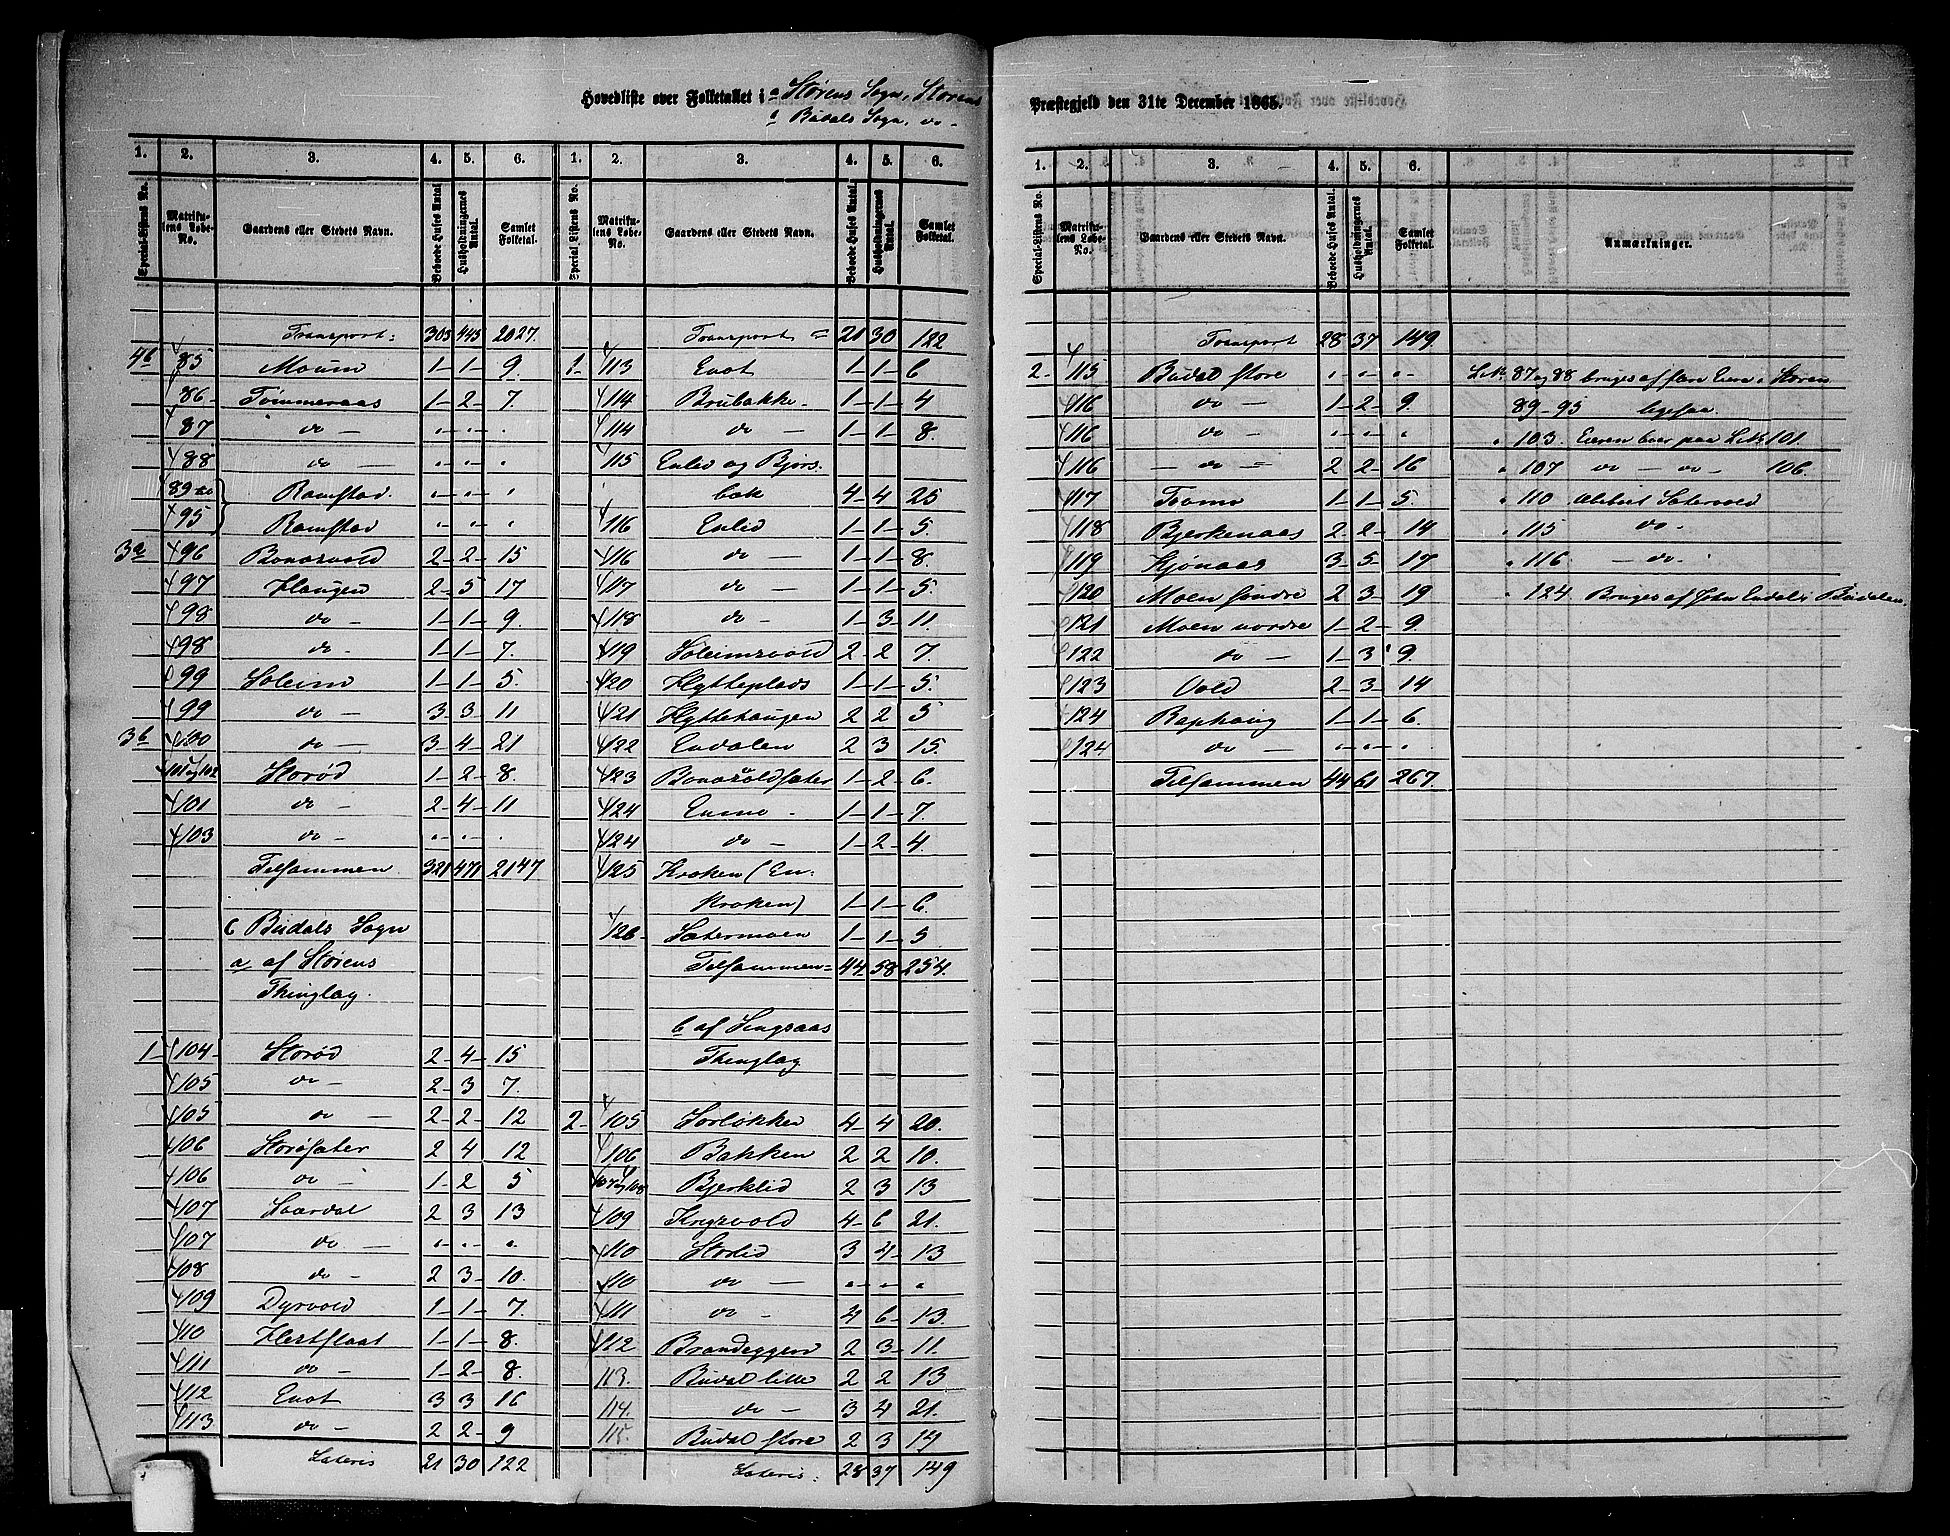 Hovedliste over Folketallet i a Størens Sogn, Størens Præstegjeld den 31te December 1865.
Budals Sogn, do -
1. 2. 3. 4. 5. 6. 1. 2. 3. 4. 5. 6.
Special-Listens No. Matrikulens Løbe-No. Gaardens eller Stedets Navn. Beboede Huses Antal. Husholdningernes Antal. Samlet Folketal. Special-Listens No. Matrikulens Løbe-No. Gaardens eller Stedets Navn. Beboede Huses Antal. Husholdningernes Antal. Samlet Folketal.
Transport: 303 445 2027.
4b 85 Moum 1 1 9.
86 Tømmeraas 1 2 7.
87 do - " " "
88 do - " " "
89 Ramstad " " "
95 Ramstad " " "
3a 96 Bonæsvold 2 2 15
97 Haugen 2 5 17
98 do - 1 1 9.
98 do - 1 1 7.
99 Soleim 1 1 5.
99 do - 3 3 11
3b 100 do - 3 4 21
101 og 102 Storød 1 2 8.
101 do - 2 4 11
103 do - " " "
Tilsammen 321 471 2147
C Budals Sogn
a af Størens
Thinglag.
1 104 Storød 2 4 15
105 do - 2 3 7.
105 do - 2 2 12
106 Storøsæter 2 4 12
106 do - 1 2 5
107 2 3 13
107 do - " " "
108 do - 2 3 10.
109 Dyrvold 1 1 7.
110 1 1 8.
111 do - 1 2 8.
112 Enot 3 3 16
113 do - 2 2 9
Lateris 21 30 122
Transport = 21 30 122
1 113 Enot 1 1 6
114 Brubakke 1 1 4
114 do - 1 1 8.
115 Enlid og Bjørs-
bæk 4 4 25
116 Enlid 1 1 5.
116 do - 1 1 8.
117 do - 1 1 5.
118 do - 1 3 11.
119 Soleimsvold 2 2 7.
120 Hytteplads 1 1 5.
121 Hyttehaugen 2 2 5
122 Endalen 2 3 15.
123 Bonæsvoldsæter 1 2 6.
124 Enmo 1 1 7.
124 do - 1 2 4
125 Kroken (En-
kroken) 1 1 6.
126 Sætermoen 1 1 5
Tilsammen = 44 58 254.
b af Singsaas
Thinglag
2 105 Sorløkken 4 4 20.
106 Bakken 2 2 10.
107 og 108 Bjerklid 2 3 13
109 Singsvold 4 6 21.
110 Storlid 3 4 13
110 do - " " "
111 do - 4 6 13.
112 Brandeggen 2 3 11.
113. Budal lille 2 2 13
114. do - 3 4 21.
115. Budal store 2 3 14
Lateris: 28 37 149
1. 2. 3. 4. 5. 6.
Special-Listens No. Matrikulens Løbe-No. Gaardens eller Stedets Navn. Beboede Huses Antal. Husholdningernes Antal. Samlet Folketal. Anmærkninger.
Transport 28 37 149.
2 115 Budal store " " " L.N. 87 og 88 bruges af Støren
116 do - 1 2 9. 89-95 ligesaa
116 do - " " " " 103. Eieren boer paa L.N. 101.
116 do 2 2 16 " 107 do - do - 106.
117 Toomo 1 1 5. " 110 Ubeboet Sætervold
118 Bjerkenaas 2 2 14 " 115 do -
119 Kjønaas 3 5 17 " 116. do -
120 Moen søndre 2 3 19 " 124 Bruges af John Endal i Budalen.
121 Moen nordre 1 2 9.
122 do - 1 3 9.
123 Vold 2 3 14
124 Raphaug 1 1 6.
124 do - " " "
Tilsammen 44 61 267.